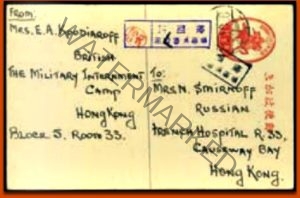 FROM:
MRS. E. A. BOUDIAROFF
BRITISH
THE MILITARY INTERNMENT
CAMP
HONGKONG
BLOCK 5. ROOM 33.
TO:
MRS N. SMIRNOFF
RUSSIAN
FRENCH HOSPITAL R. 33.
CAUSEWAY BAY
HONG KONG.
WATERMARKED